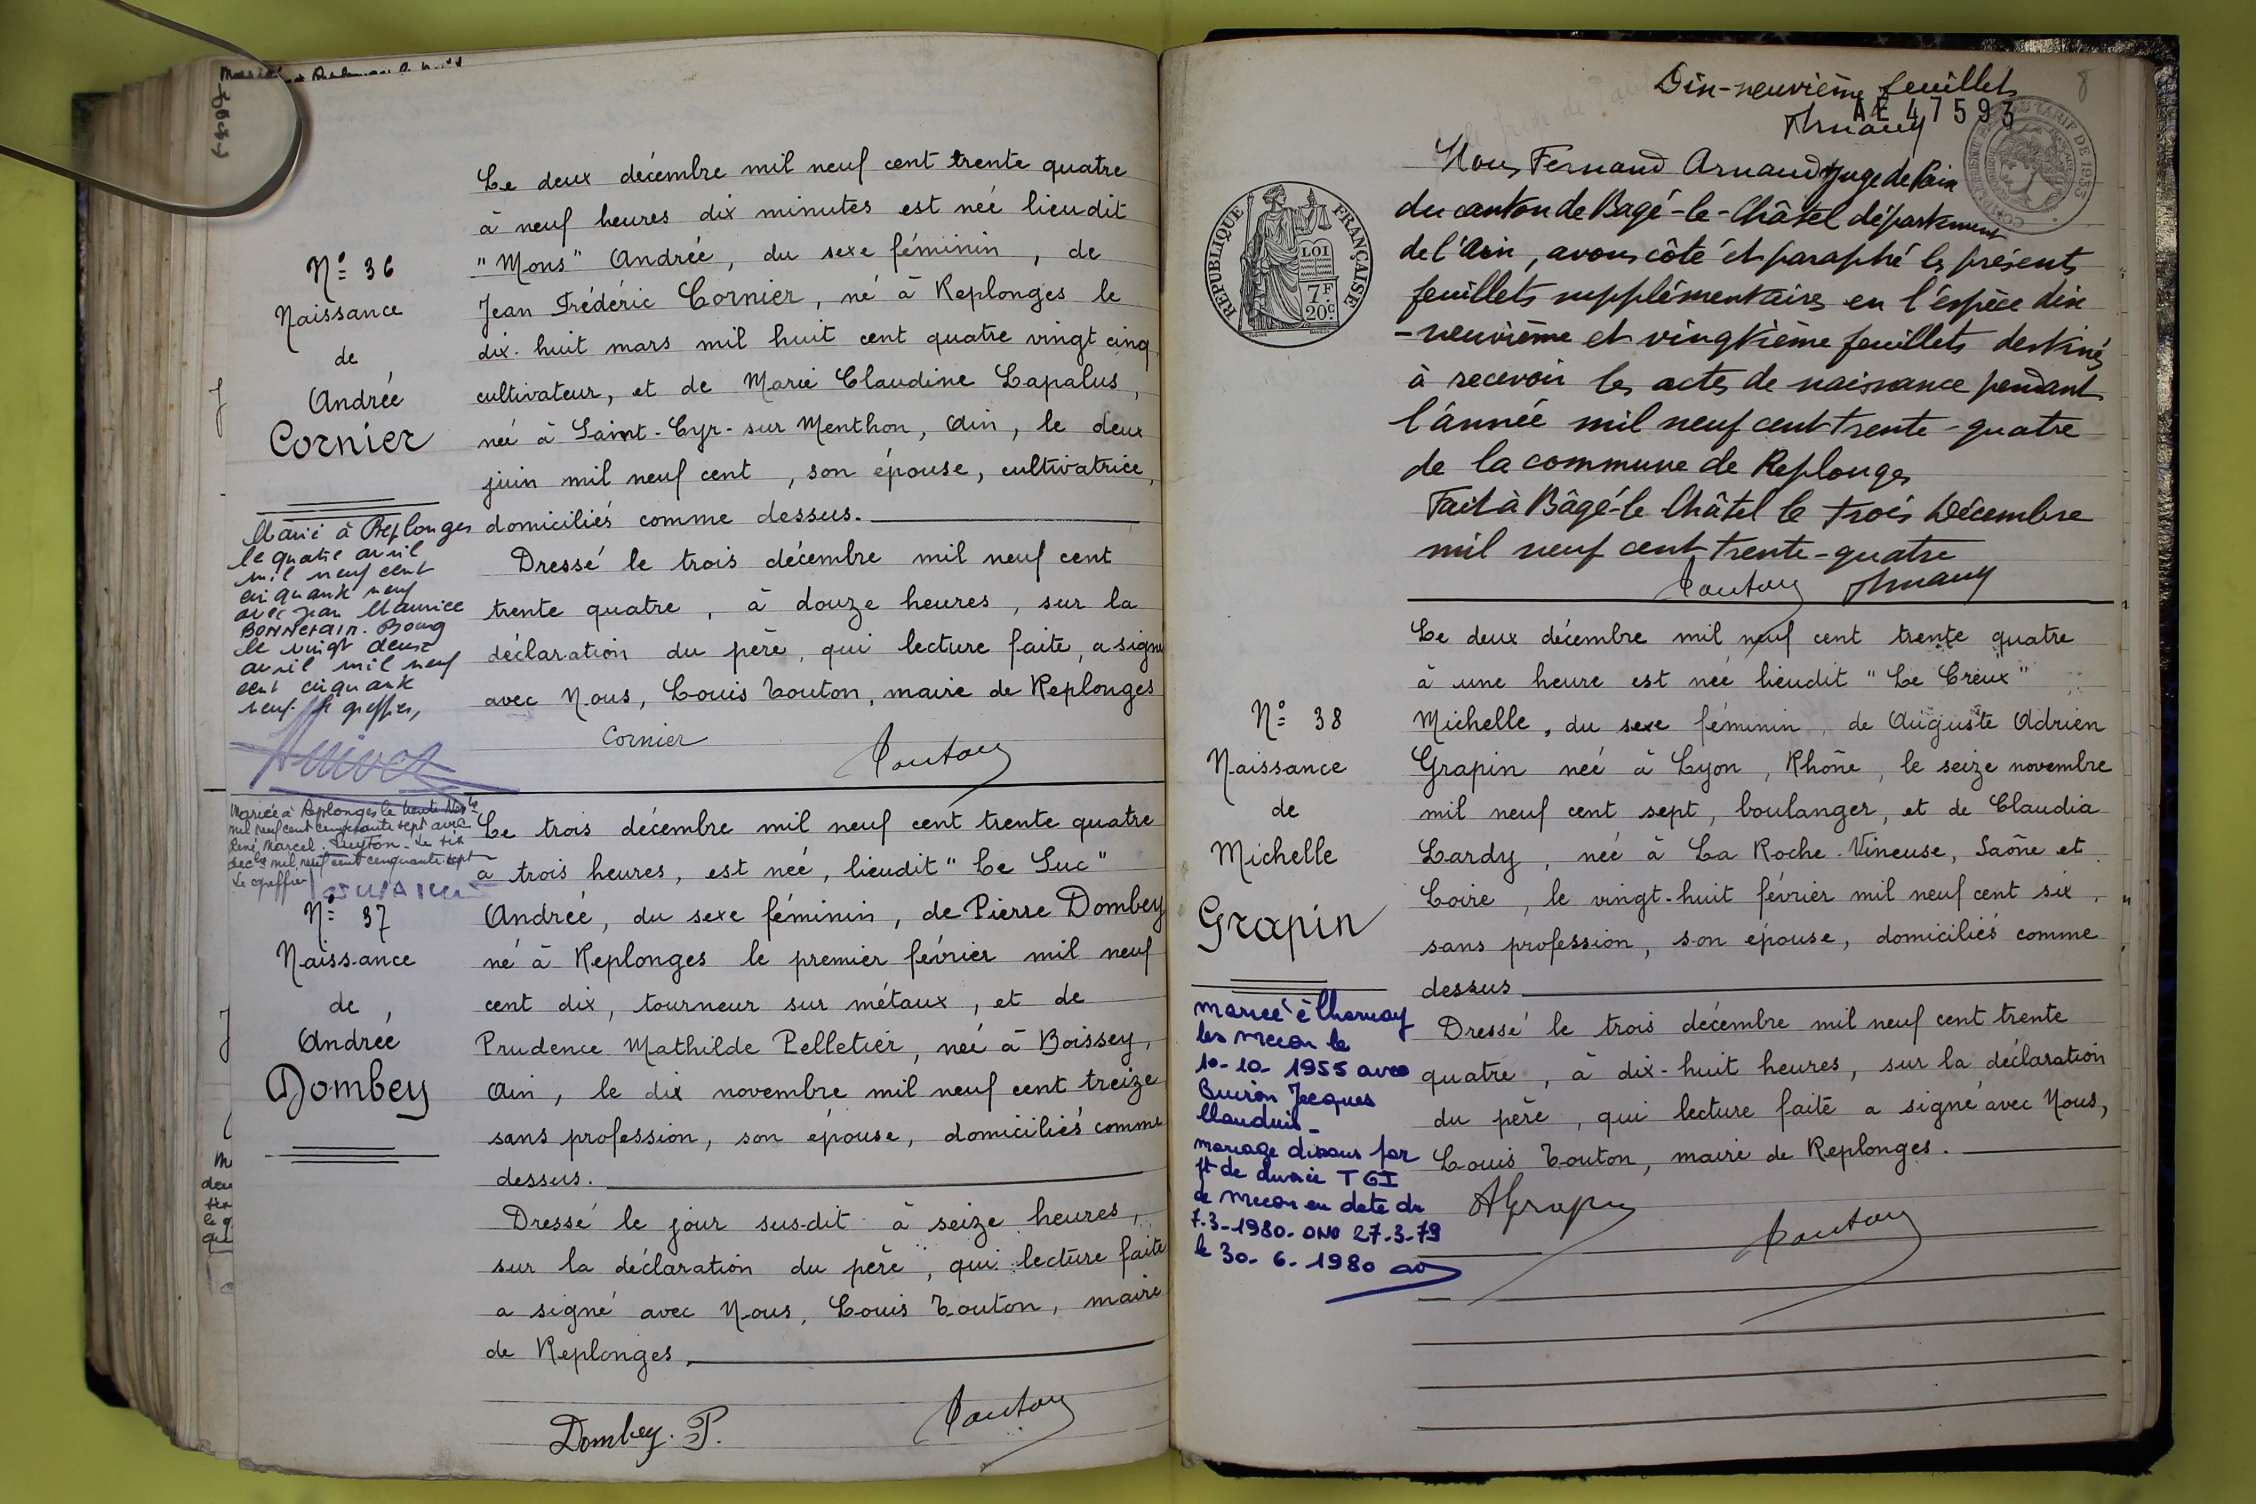 N° 36
Naissance
de
Andrée
Cornier
Marié à Replonges
le quatre avril
mil neuf cent
cinquante neuf
avec Jean Maurice
BONNETAIN. Bourg
le vingt deux
avril mil neuf
cent cinquante
neuf. Le greffier,
Le deux décembre mil neuf cent trente quatre
à neuf heures dix minutes est née lieudit
"Mons" Andrée, du sexe féminin, de
Jean Frédéric Cornier, né à Replonges le
dix-huit mars mil huit cent quatre vingt cinq
cultivateur, et de Marie Claudine Lapalus,
née à Saint-Cyr-sur Menthon, Ain, le deux
juin mil neuf cent, son épouse, cultivatrice,
domiciliés comme dessus.
Dressé le trois décembre mil neuf cent
trente quatre, à douze heures, sur la
déclaration du père, qui lecture faite, a signé
avec Nous, Louis Touton, maire de Replonges
Cornier
Touton
Mariée à Replonges le trente
mil neuf cent cinquante sept avec
René Marcel. Le six
mil neuf cent cinquante sept
Le greffier
N° 37
Naissance
de
Andrée
Dombey
Le trois décembre mil neuf cent trente quatre
à trois heures, est née, lieudit "Le Luc"
Andrée, du sexe féminin, de Pierre Dombey
né à Replonges le premier février mil neuf
cent dix, tourneur sur métaux, et de
Prudence Mathilde Pelletier, née à Boissey,
Ain, le dix novembre mil neuf cent treize
sans profession, son épouse, domiciliés comme
dessus.
Dressé le jour sus-dit à seize heures,
sur la déclaration du père, qui lecture faite
a signé avec Nous, Louis Touton, maire
de Replonges.
Dombey. P.
Touton
8
Dix-neuvième feuillet
AE 47593
Arnaud
RÉPUBLIQUE FRANÇAISE
LOI
7F
20c
TARIF DE 1933
Nous Fernand Arnaud Juge de Paix
du canton de Bagé-le-Châtel département
de l'Ain, avons côté et paraphé les présents
feuillets supplémentaires en l'espèce dix
-neuvième et vingtième feuillets destinés
à recevoir les actes de naissance pendant
l'année mil neuf cent trente-quatre
de la commune de Replonges
Fait à Bâgé-le Châtel le trois Décembre
mil neuf cent trente-quatre
Touton Arnaud
N° 38
Naissance
de
Michelle
Grapin
mariée à Charnay
les Macon le
10-10-1955 avec
Buiron Jacques
Claudius
mariage dissous par
jt de divorce TGI
de Macon en date du
7-3-1980. ONC 27-3-79
le 30-6-1980
Le deux décembre mil neuf cent trente quatre
à une heure est née lieudit "Le Creux"
Michelle, du sexe féminin, de Auguste Adrien
Grapin né à Lyon, Rhône, le seize novembre
mil neuf cent sept, boulanger, et de Claudia
Lardy, née à La Roche-Vineuse, Saône et
Loire, le vingt-huit février mil neuf cent six,
sans profession, son épouse, domiciliés comme
dessus
Dressé le trois décembre mil neuf cent trente
quatre, à dix-huit heures, sur la déclaration
du père, qui lecture faite a signé avec Nous,
Louis Touton, maire de Replonges.
AGrapin
Touton